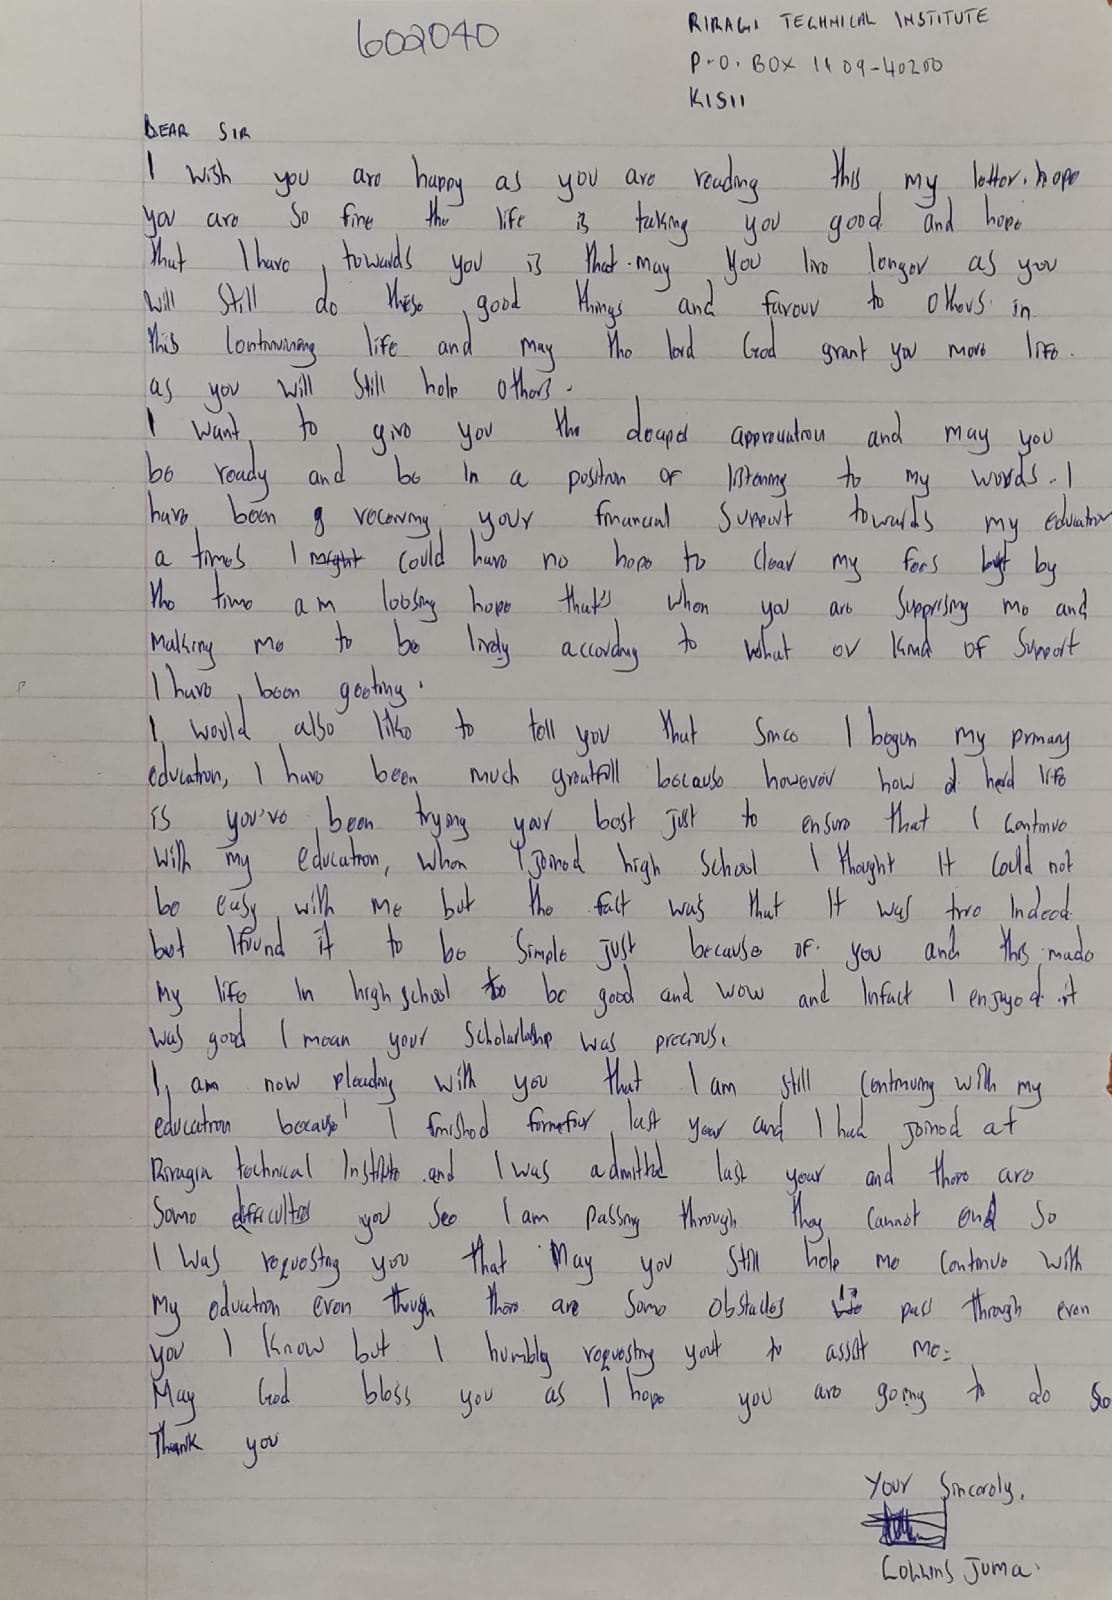 602040
RIRAGI TECHNICAL INSTITUTE
P.O. BOX 1109-40200
KISII
DEAR SIR
I wish you are happy as you are reading this my letter. hope
you are so fine the life is taking you good and hope
that I have towards you is that may you live longer as you
will still do these good things and favour to others in
this continuing life and may the lord God grant you more life.
as you will still help others.
I want to give you the deaped appreciation and may you
be ready and be in a position of listening to my words. I
have been receiving your financial support towards my education
a times I might could have no hope to clear my fees but by
the time am loosing hope that's when you are supprising me and
making me to be lively according to what or kind of support
I have been geeting.
I would also like to tell you that since I begun my primary
education, I have been much greatfull because however how hard life
is you've been trying your best just to ensure that I continue
with my education, when I joined high school I thought it could not
be easy with me but the fact was that it was true indeed
but I found it to be simple just because of you and this made
my life in high school to be good and wow and infact I enjoyed it
was good I mean your scholarship was precious.
I am now pleading with you that I am still continuing with my
education because I finished form four last year and I had joined at
Riragia technical Institute and I was admitted last year and there are
some difficulties you see I am passing through they cannot end so
I was requesting you that May you still help me continue with
my education even though there are some obstacles pass through even
you I know but I humbly requesting your to assist me.
May God bless you as I hope you are going to do so
Thank you
Your Sincerely,
Collins Juma.